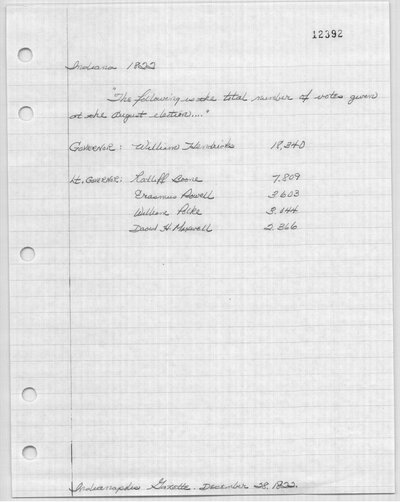 12392
Indiana 1822
"The following is the total number of votes given
at the August election...."
GOVERNOR: William Hendricks 18,340
Lt. GOVERNOR: Ratliff Boone 7,809
Erasmus Powell 3,603
William Polke 3,444
David H. Maxwell 2,366
Indianapolis Gazette. December 28, 1822.